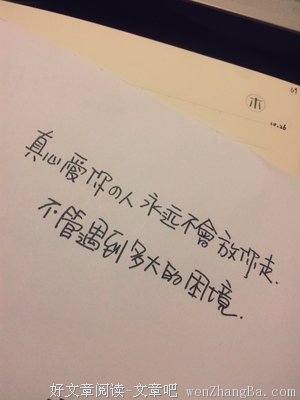 69
木
10.26
真心愛你の人永远不會放你走.
不管遇到多大的困境.
好文章阅读-文章吧 wenZhangBa.com